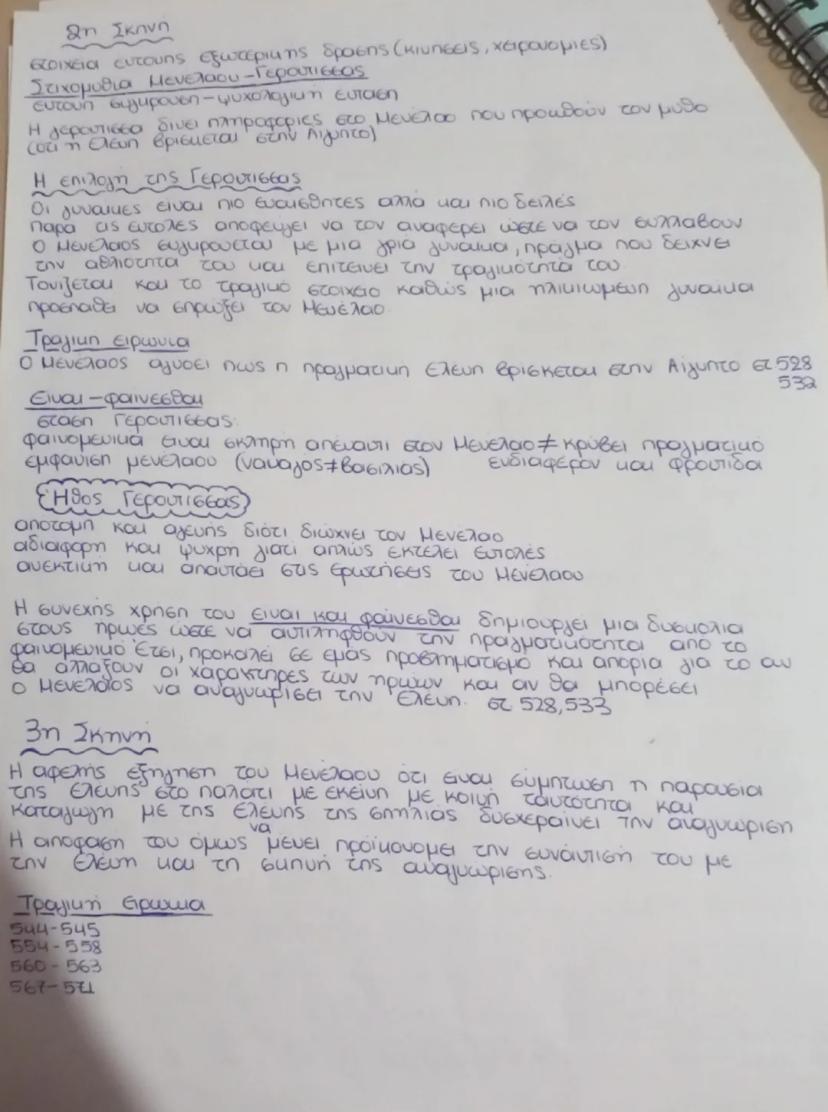 2η Σκηνή
στοιχεία έντονης εξωτερικής δράσης (κινήσεις, χειρονομίες)
Στιχομυθία Μενέλαου-Γερόντισσας
έντονη σύγκρουση-ψυχολογική ένταση
Η γερόντισσα δίνει πληροφορίες στο Μενέλαο που προωθούν τον μύθο
(ότι η Ελένη βρίσκεται στην Αίγυπτο)
Η επιλογή της Γερόντισσας
Οι γυναίκες είναι πιο ευαίσθητες αλλά και πιο δειλές
παρά τις εντολές αποφεύγει να τον αναφέρει ώστε να τον συλλάβουν
Ο Μενέλαος συγκρούεται με μια γριά γυναίκα, πράγμα που δείχνει
την αθλιότητα του και επιτείνει την τραγικότητά του
Τονίζεται και το τραγικό στοιχείο καθώς μια ηλικιωμένη γυναίκα
προσπαθεί να σπρώξει τον Μενέλαο
Τραγική ειρωνία
Ο Μενέλαος αγνοεί πως η πραγματική Ελένη βρίσκεται στην Αίγυπτο στ 528
532
Είναι-φαίνεσθαι
στάση Γερόντισσας:
φαινομενικά είναι σκληρή απέναντι στον Μενέλαο≠κρύβει πραγματικό
εμφάνιση μενέλαου (ναυαγός≠βασιλιάς) ενδιαφέρον και φροντίδα
Ήθος Γερόντισσας
απότομη και αγενής διότι διώχνει τον Μενέλαο
αδιάφορη και ψυχρή γιατί απλώς εκτελεί εντολές
ανεκτική και απαντάει στις ερωτήσεις του Μενέλαου
Η συνεχής χρήση του είναι και φαίνεσθαι δημιουργεί μια δυσκολία
στους ήρωές ώστε να αντιληφθούν την πραγματικότητα από το
φαινομενικό Έτσι, προκαλεί σε εμάς προβληματισμό και απορία για το αν
θα αλλάξουν οι χαρακτήρες των ηρώων και αν θα μπορέσει
ο Μενέλαος να αναγνωρίσει την Ελένη. στ 528,533
3η Σκηνή
Η αφελής εξήγηση του Μενέλαου ότι είναι σύμπτωση η παρουσία
της Ελένης στο παλάτι με εκείνη με κοινή ταυτότητα και
καταγωγή με της Ελένης της σπηλιάς δυσχεραίνει την αναγνώριση
Η απόφαση του όμως να μένει προϊκονομεί την συνάντισή του με
την Ελένη και τη σκηνή της αναγνώρισης.
Τραγική ειρωνία
544-545
554-558
560-563
567-571